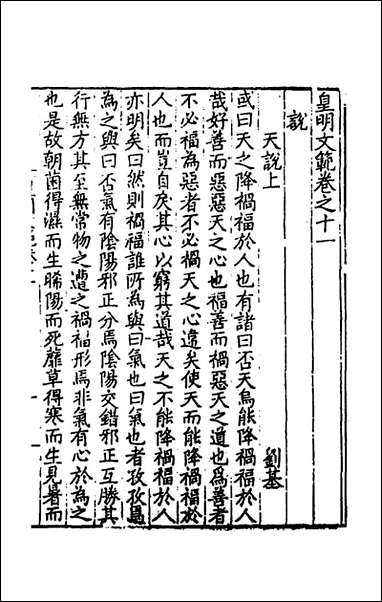 皇明文範卷之十一
說
天說上 劉基
或曰天之降禍福於人也有諸曰否天烏能降禍福於人
哉好善而惡惡天之心也福善而禍惡天之道也為善者
不必福為惡者不必禍天之心違矣使天而能降禍福於
人也而豈自戾其心以窮其道哉天之不能降禍福於人
亦明矣曰然則禍福誰所為與曰氣也曰氣也者孜孜焉
為之與曰否氣有陰陽邪正分焉陰陽交錯邪正互勝其
行無方其至無常物之遭之禍福形焉非氣有心於為之
也是故朝菌得濕而生晞陽而死靡草得寒而生見暑而